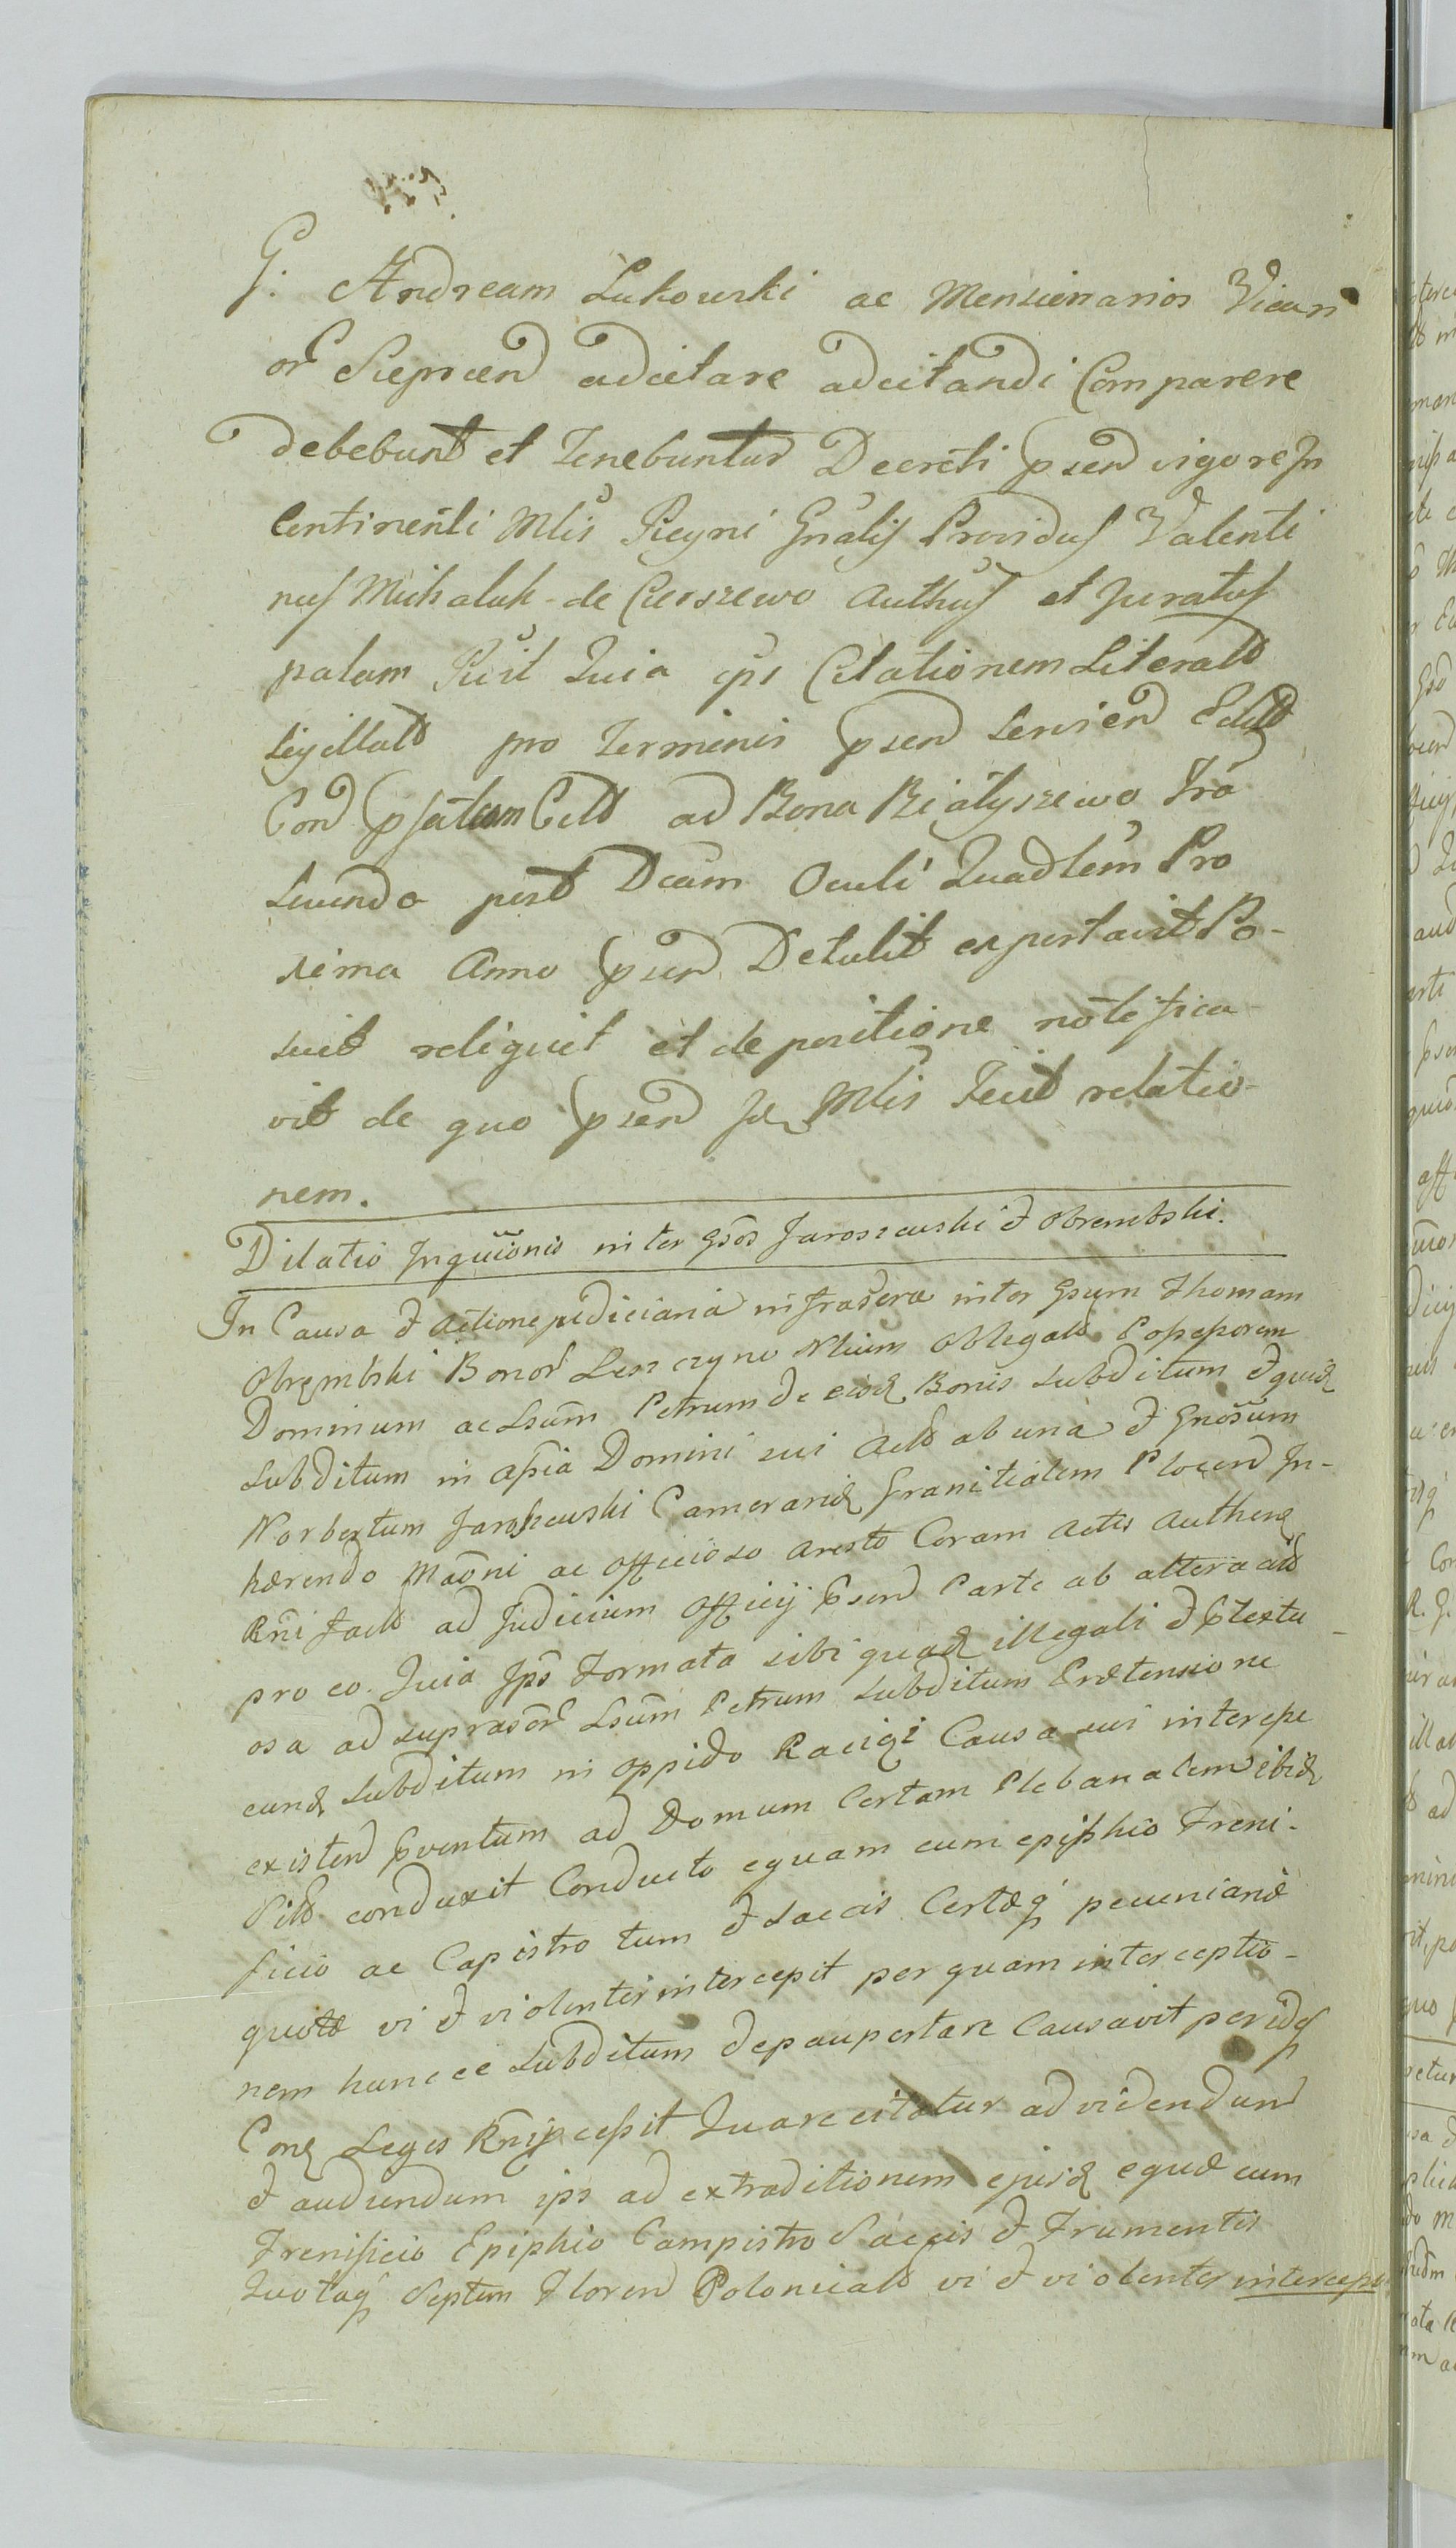 G. Andream Lukowski ac Mensionarios Vicari
or Sieprcen adcitare adcitandi Comparere
debebunt et Tenebuntur Decreti psen vigore In
Continenti Mlis Regni Gnalis Providus Valenti
nus Michaluk de Cierszewo Authus et Juratus
palam Rcit Quia ips Citationem Literalt
sigillatt pro Terminis psen servien Editt
Con psatum Citt ad Bona Białyszewo Fra
secunda post Dcam Oculi Quadlem Pro
xima Anno psen Detulit exportavit Po-
suit reliquit et de positione notifica
vit de quo psen Id Mlis Fecit relatio-
nem.
Dilatio Inquionis inter Gsos Jaroszewski & Obrembski.
In Causa & actione judiciaria infrascra inter Gsum Thomam
Obrembski Bonor Leszczyno Obligatt Possessorem
Dominum ac Lsum Petrum de eisd Bonis subditum & quid
subditum in assia Domini sui Actt ab una & Gnosum
Norbertum Jaroszewski Camerarid Granitialem Plocen In-
hærendo Maoni ac Officioso aresto Coram Actis Authend
Rni factt ad Judicium Officij psen Parte ab altera citt
pro eo. Quia Ips Formata sibi quad illegali & ptextu
osa ad suprascr Lsum Petrum subditum Prætensione
eund subditum in oppido Raciąż Causa sui interesse
existen pventum ad Domum Certam Plebanalem ibid
Sitt conduxit Conducto equam cum epiphio Freni-
ficio ac Capistro tum & saccis Certæq pecuniariæ
quotæ vi & violenter intercepit per quam interceptio-
nem huncce subditum depaupertare Causavit per idq
Cond Leges Rni pcessit Quare citatur ad videndum
& audiendum ips ad extraditionem ejusd equæ cum
Frenificio Epiphio Campistro Saccis & Frumentis
Quotaq Septem Floren Polonicalt vi & violenter intercep